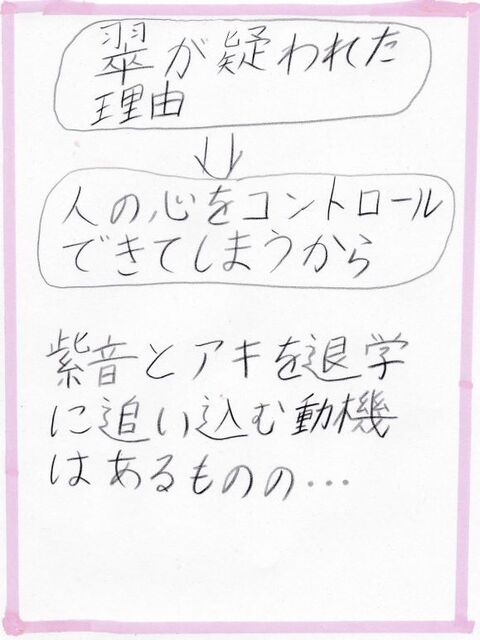 翠が疑われた
理由
人の心をコントロール
できてしまうから
紫音とアキを退学
に追い込む動機
はあるものの…